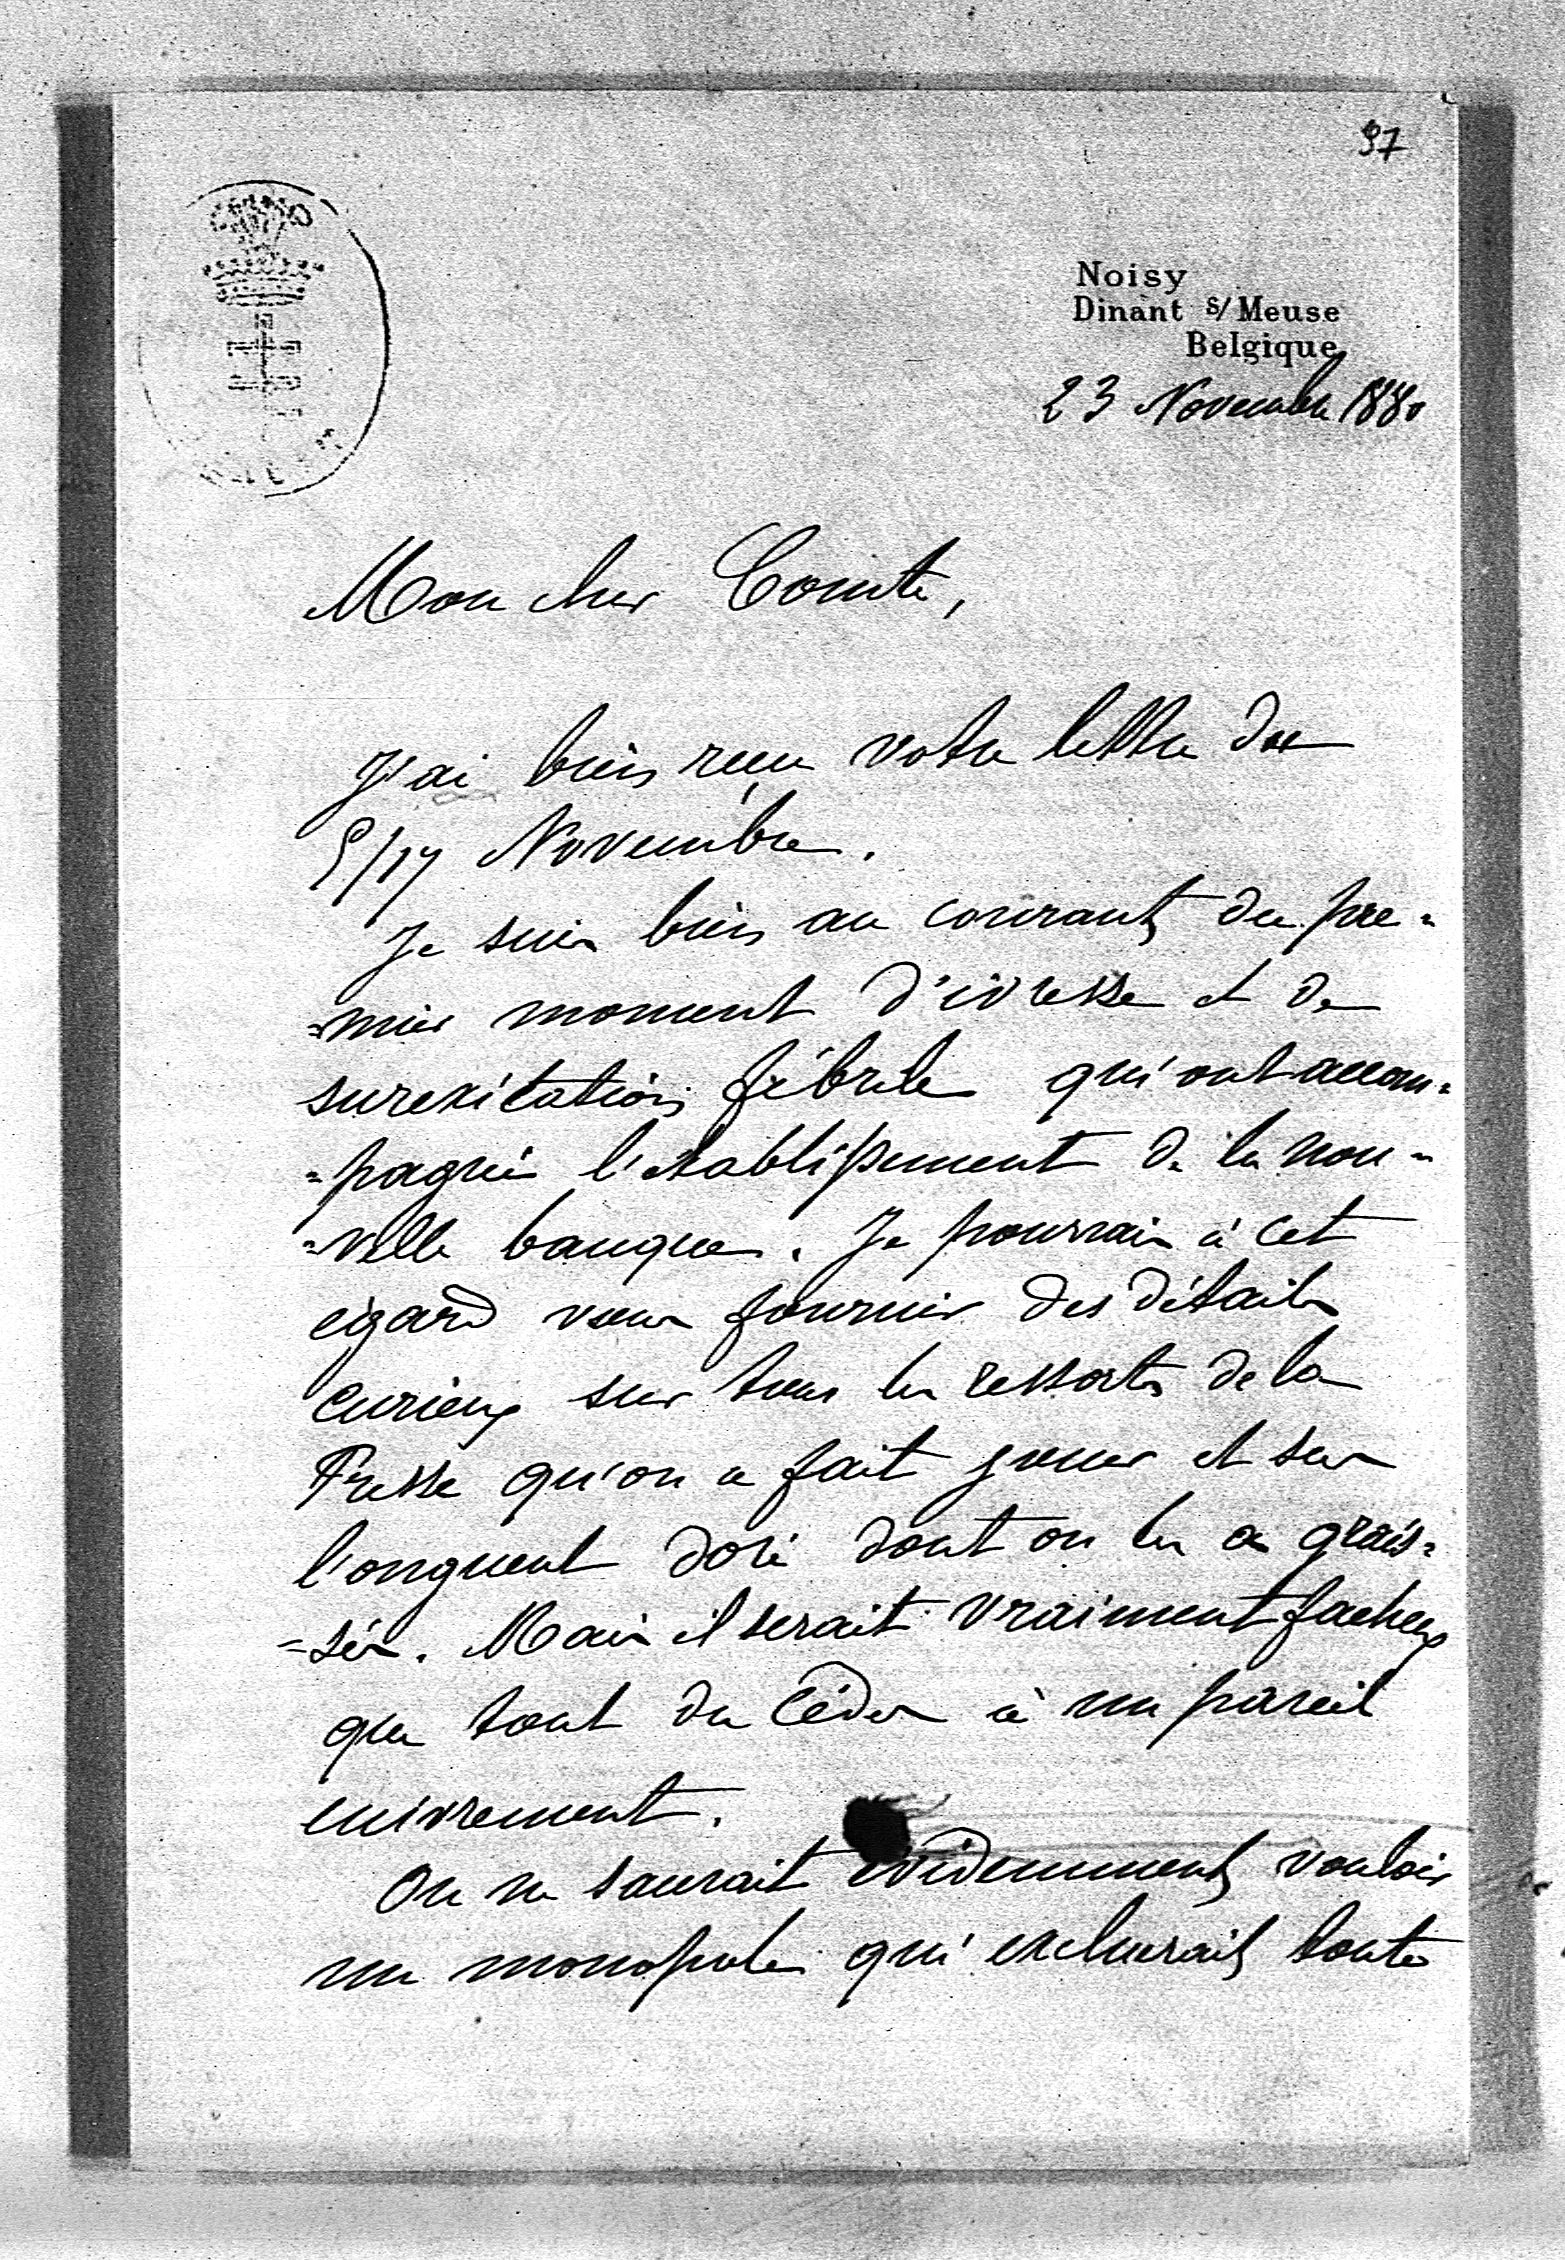 97
Noisy
Dinant s/ Meuse
Belgique
23 Novembre 1880
Mon cher Comte,
J'ai bien reçu votre lettre du
5/17 Novembre.
Je suis bien au courant du pre=
=mier moment d'ivresse et de
surexitation fébrile qui ont accom=
=pagné l'établissement de la nou=
=velle banque. Je pourrais à cet
égard vous fournir des détails
curieux sur tous les ressorts de la
Presse qu'on a fait jouer et sur
l'onguent doré dont on les a grais=
=sés. Mais il serait vraiment facheux
que tout du céder à un pareil
enivrement.
On ne saurait évidemment vouloir
un monopole qui excluerait toute